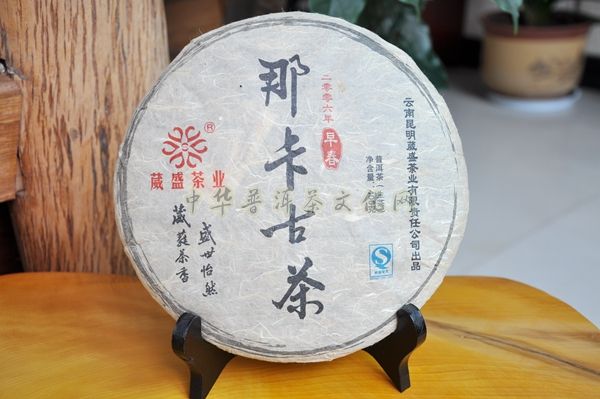 那卡古茶
二零零六年
早春
普洱茶（生茶）
净含量：
云南昆明葳盛茶业有限责任公司出品
®
葳盛茶业
盛世怡然
葳蕤茶香
中华普洱茶文化网